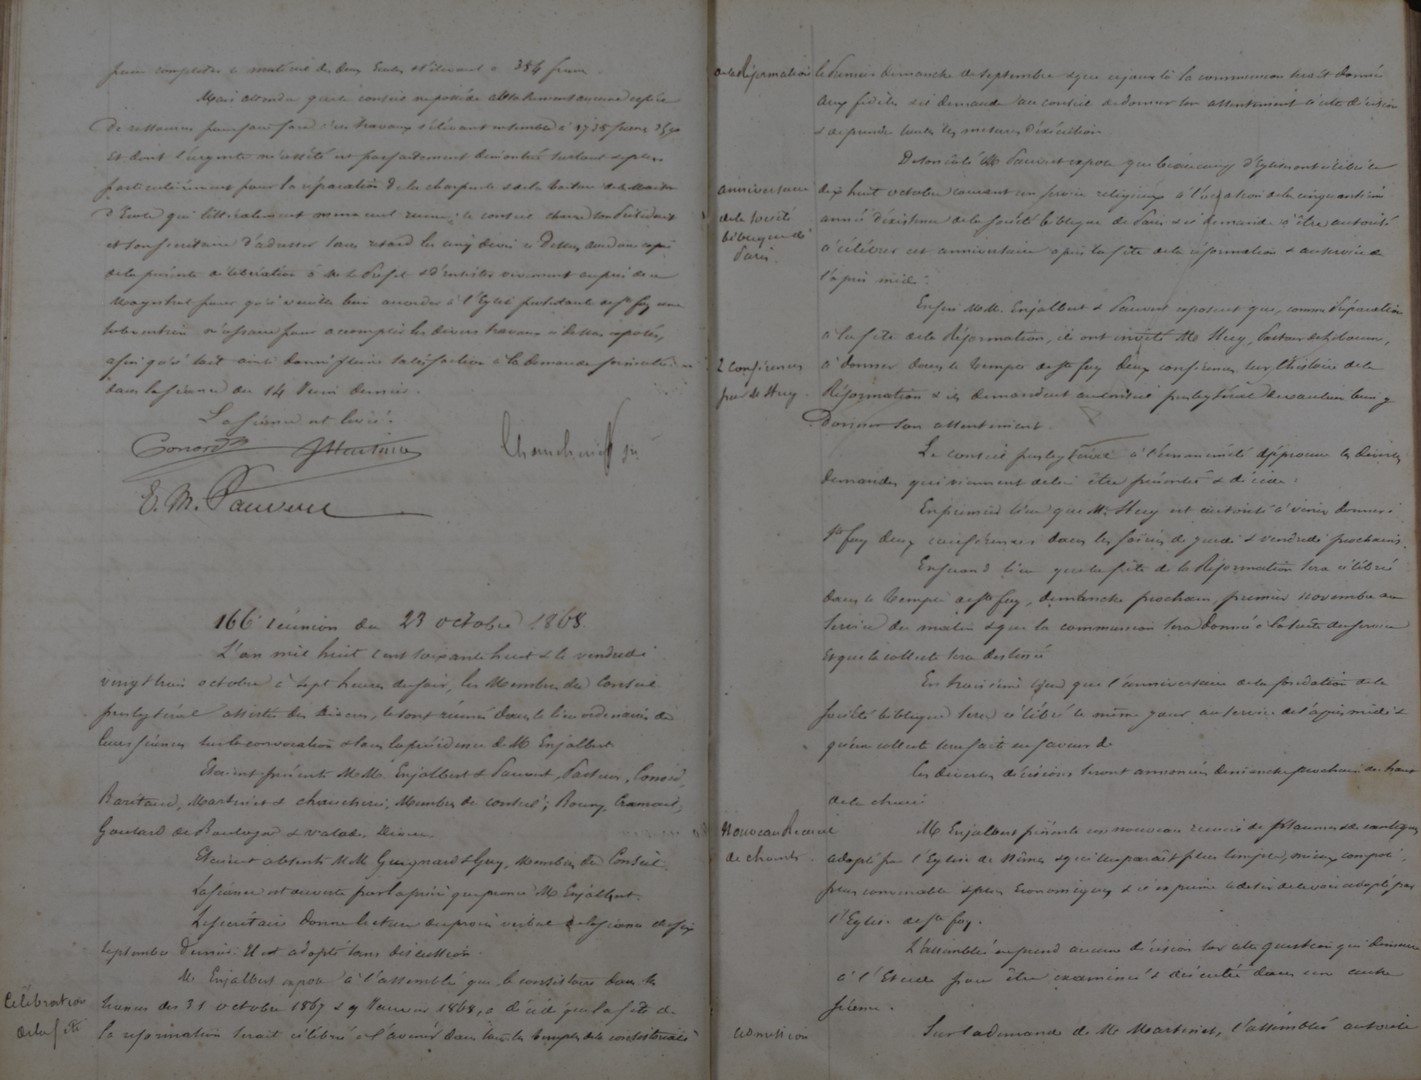 pour compléter le matériel des deux Ecoles s'élevant à 384 francs.
Mais attendu que le conseil ne possède absolument aucune espèce
de ressources pour faire face à ces travaux s'élevant ensemble à 1735 francs
et dont l'urgente nécessité est parfaitement démontrée surtout et plus
particulièrement pour la réparation de la charpente & de la toiture de la Maison
d'Ecole qui littéralement menacent ruine: le conseil charge son Président
et son secrétaire d'adresser sans retard les cinq devis ci-dessus, avec une copie
de la présente délibération à M. le Préfet & d'insister vivement auprès de ce
Magistrat pour qu'il veuille bien accorder à l'Eglise protestante de Ste foy une
subvention nécessaire pour accomplir les divers travaux ci-dessus exposés,
afin qu'il soit ainsi donné pleine satisfaction à la demande formulée
dans la séance du 14 dernier.
La séance est levée.
E. M. Pauvert
166e réunion du 23 octobre 1868
L'an mil huit cent soixante huit & le vendredi
vingt trois octobre à sept heures du soir, les Membres du Conseil
presbytéral assistés des diacres, se sont réunis dans le lieu ordinaire de
leurs séances sur la convocation & sous la présidence de M. Enjalbert.
Etaient présents M.M. Enjalbert & Pauvert, Pasteurs,
Baritaud, Martinet & Membres du conseil;
Goulard de & Valade, Diacres.
Etaient absents M.M. Guignard & Guy, Membres du Conseil.
La séance est ouverte par la prière que prononce M. Enjalbert.
Le secrétaire donne lecture du procès verbal de la séance du six
septembre dernier. Il est adopté sans discussion.
M. Enjalbert expose à l'assemblée que le consistoire dans les
Célébration
de la fête
séances des 31 octobre 1867 & 9 1868, a décidé que la fête de
la réformation serait célébrée à l'avenir dans tous les temples de la consistoriale
de la Réformation
le dernier dimanche de septembre & que ce jour là la communion serait donnée
aux fidèles & il demande au conseil de donner son assentiment à cette décision
& de prendre toutes les mesures d'exécution.
De son côté M. Pauvert expose que beaucoup d'Eglises ont célébré le
anniversaire
de la Société
biblique de
Paris.
dix huit octobre courant un service religieux à l'occasion de la cinquantième
année d'existence de la Société biblique de Paris & il demande d'être autorisé
à célébrer cet anniversaire après la fête de la réformation & au service de
l'après midi.
Enfin M.M. Enjalbert & Pauvert exposent que, comme préparation
à la fête de la Réformation, ils ont invité M. Huy, Pasteur de
2 conférences
par M. Huy.
à donner dans le Temple de Ste foy deux conférences sur l'histoire de la
Réformation & ils demandent au conseil presbytéral de vouloir bien y
donner son assentiment.
Le conseil presbytéral à l'unanimité approuve les diverses
demandes qui viennent de lui être présentées & décide:
En premier lieu que M. Huy est autorisé à venir donner à
Ste foy deux conférences dans les soirées de jeudi & vendredi prochains.
En second lieu que la fête de la Réformation sera célébrée
dans le Temple de Ste foy, dimanche prochain, premier novembre au
service du matin & que la communion sera donnée à la suite du service
et que la collecte sera destinée
En troisième lieu que l'anniversaire de la fondation de la
Société biblique sera célébré le même jour au service de l'après midi &
qu'une collecte sera faite en faveur de
Ces diverses décisions seront annoncées dimanche prochain du haut
de la chaire.
Nouveau Recueil
de chants.
M. Enjalbert présente un nouveau recueil de Psaumes & de cantiques
adopté par l'Eglise de Nîmes & qui lui paraît plus simple, mieux composé,
plus convenable & plus économique, & il exprime le désir de le voir adopté par
l'Eglise de Ste foy.
L'assemblée ne prend aucune décision sur cette question qui demeure
à l'Etude pour être examinée & discutée dans une autre
séance.
admission
Sur la demande de M. Martinet, l'assemblée autorise